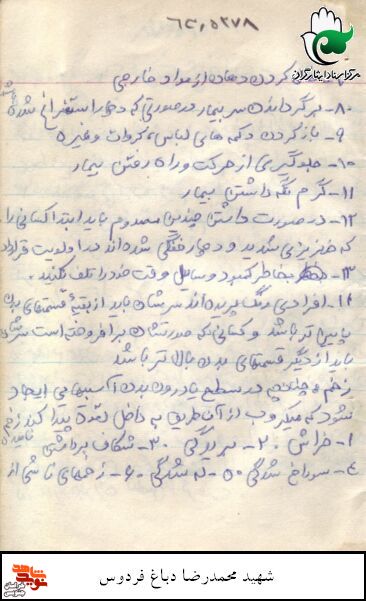 ۶۲,۵۲۷۸
مرکز اسناد ایثارگران
کردن دهان از مواد خارجی
۸- برگرداندن سر بیمار در صورتی که دچار استفراغ شده
۹- باز کردن دکمه های لباس، کروات و غیره
۱۰- جلوگیری از حرکت و راه رفتن بیمار
۱۱- گرم نگه داشتن بیمار
۱۲- در صورت داشتن چندین مصدوم باید ابتدا کسانی را
که خونریزی شدید و دچار خفگی شده اند در اولویت قرار داد
۱۳- بخاطر کمبود وسایل وقت خود را تلف نکنید.
۱۴- افرادی رنگ پریده اند سرشان باید از بقیه قسمتهای بدن
پایین تر باشد و کسانی که صورتشان برافروخته است سرشان
باید از دیگر قسمتهای بدن بالاتر باشد
زخم: چنانچه در سطح یا درون بدن آسیبهایی ایجاد
شود که میکروب از آن طریق به داخل نفوذ پیدا کند زخم نامند
۱- خراش ۲- بریدگی ۳- شکاف برداشتن
۴- سوراخ شدگی ۵- له شدگی ۶- زخمهای ناشی از
شهید محمدرضا دباغ فردوس
نوید شاهد
خراسان جنوبی